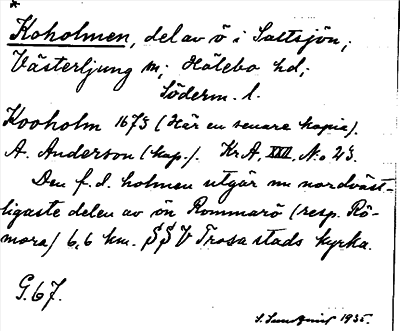 *
Koholmen, del av ö i Saltsjön;
Västerljung sn; Hölebo hd;
Söderm. l.
Kooholm 1673 (Här en senare kopia).
A. Anderson (kap.). Kr.A, XXII, N:o 23.
Den f.d. holmen utgör nu nordväst-
ligaste delen av ön Rommarö (resp. Rö-
mora) 6,6 km. SSV Trosa stads kyrka.
G.67.
1935.